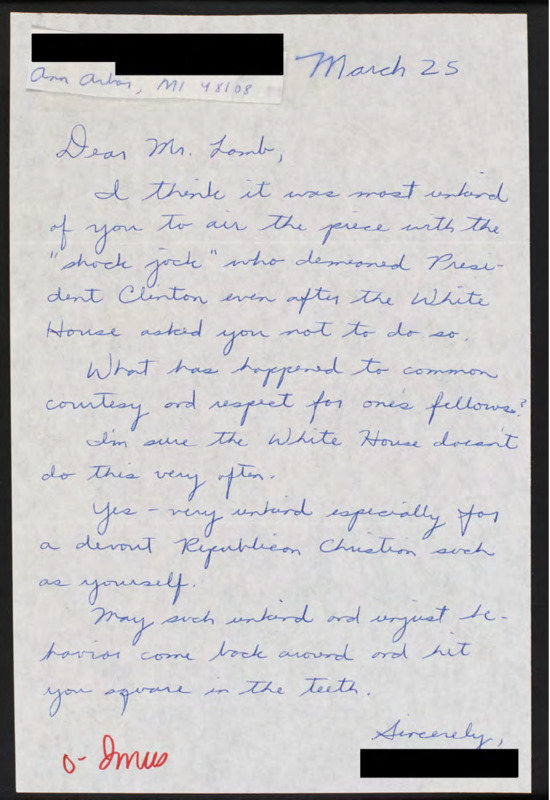 Ann Arbor, MI 48108
March 25
Dear Mr. Lamb,
I think it was most unkind
of you to air the piece with the
"shock jock" who demeaned Presi-
dent Clinton even after the White
House asked you not to do so.
What has happened to common
courtesy and respect for one's fellows?
I'm sure the White House doesn't
do this very often.
Yes - very unkind especially for
a devout Republican Christian such
as yourself.
May such unkind and unjust be-
havior come back around and hit
you square in the teeth.
Sincerely,
O- Imus